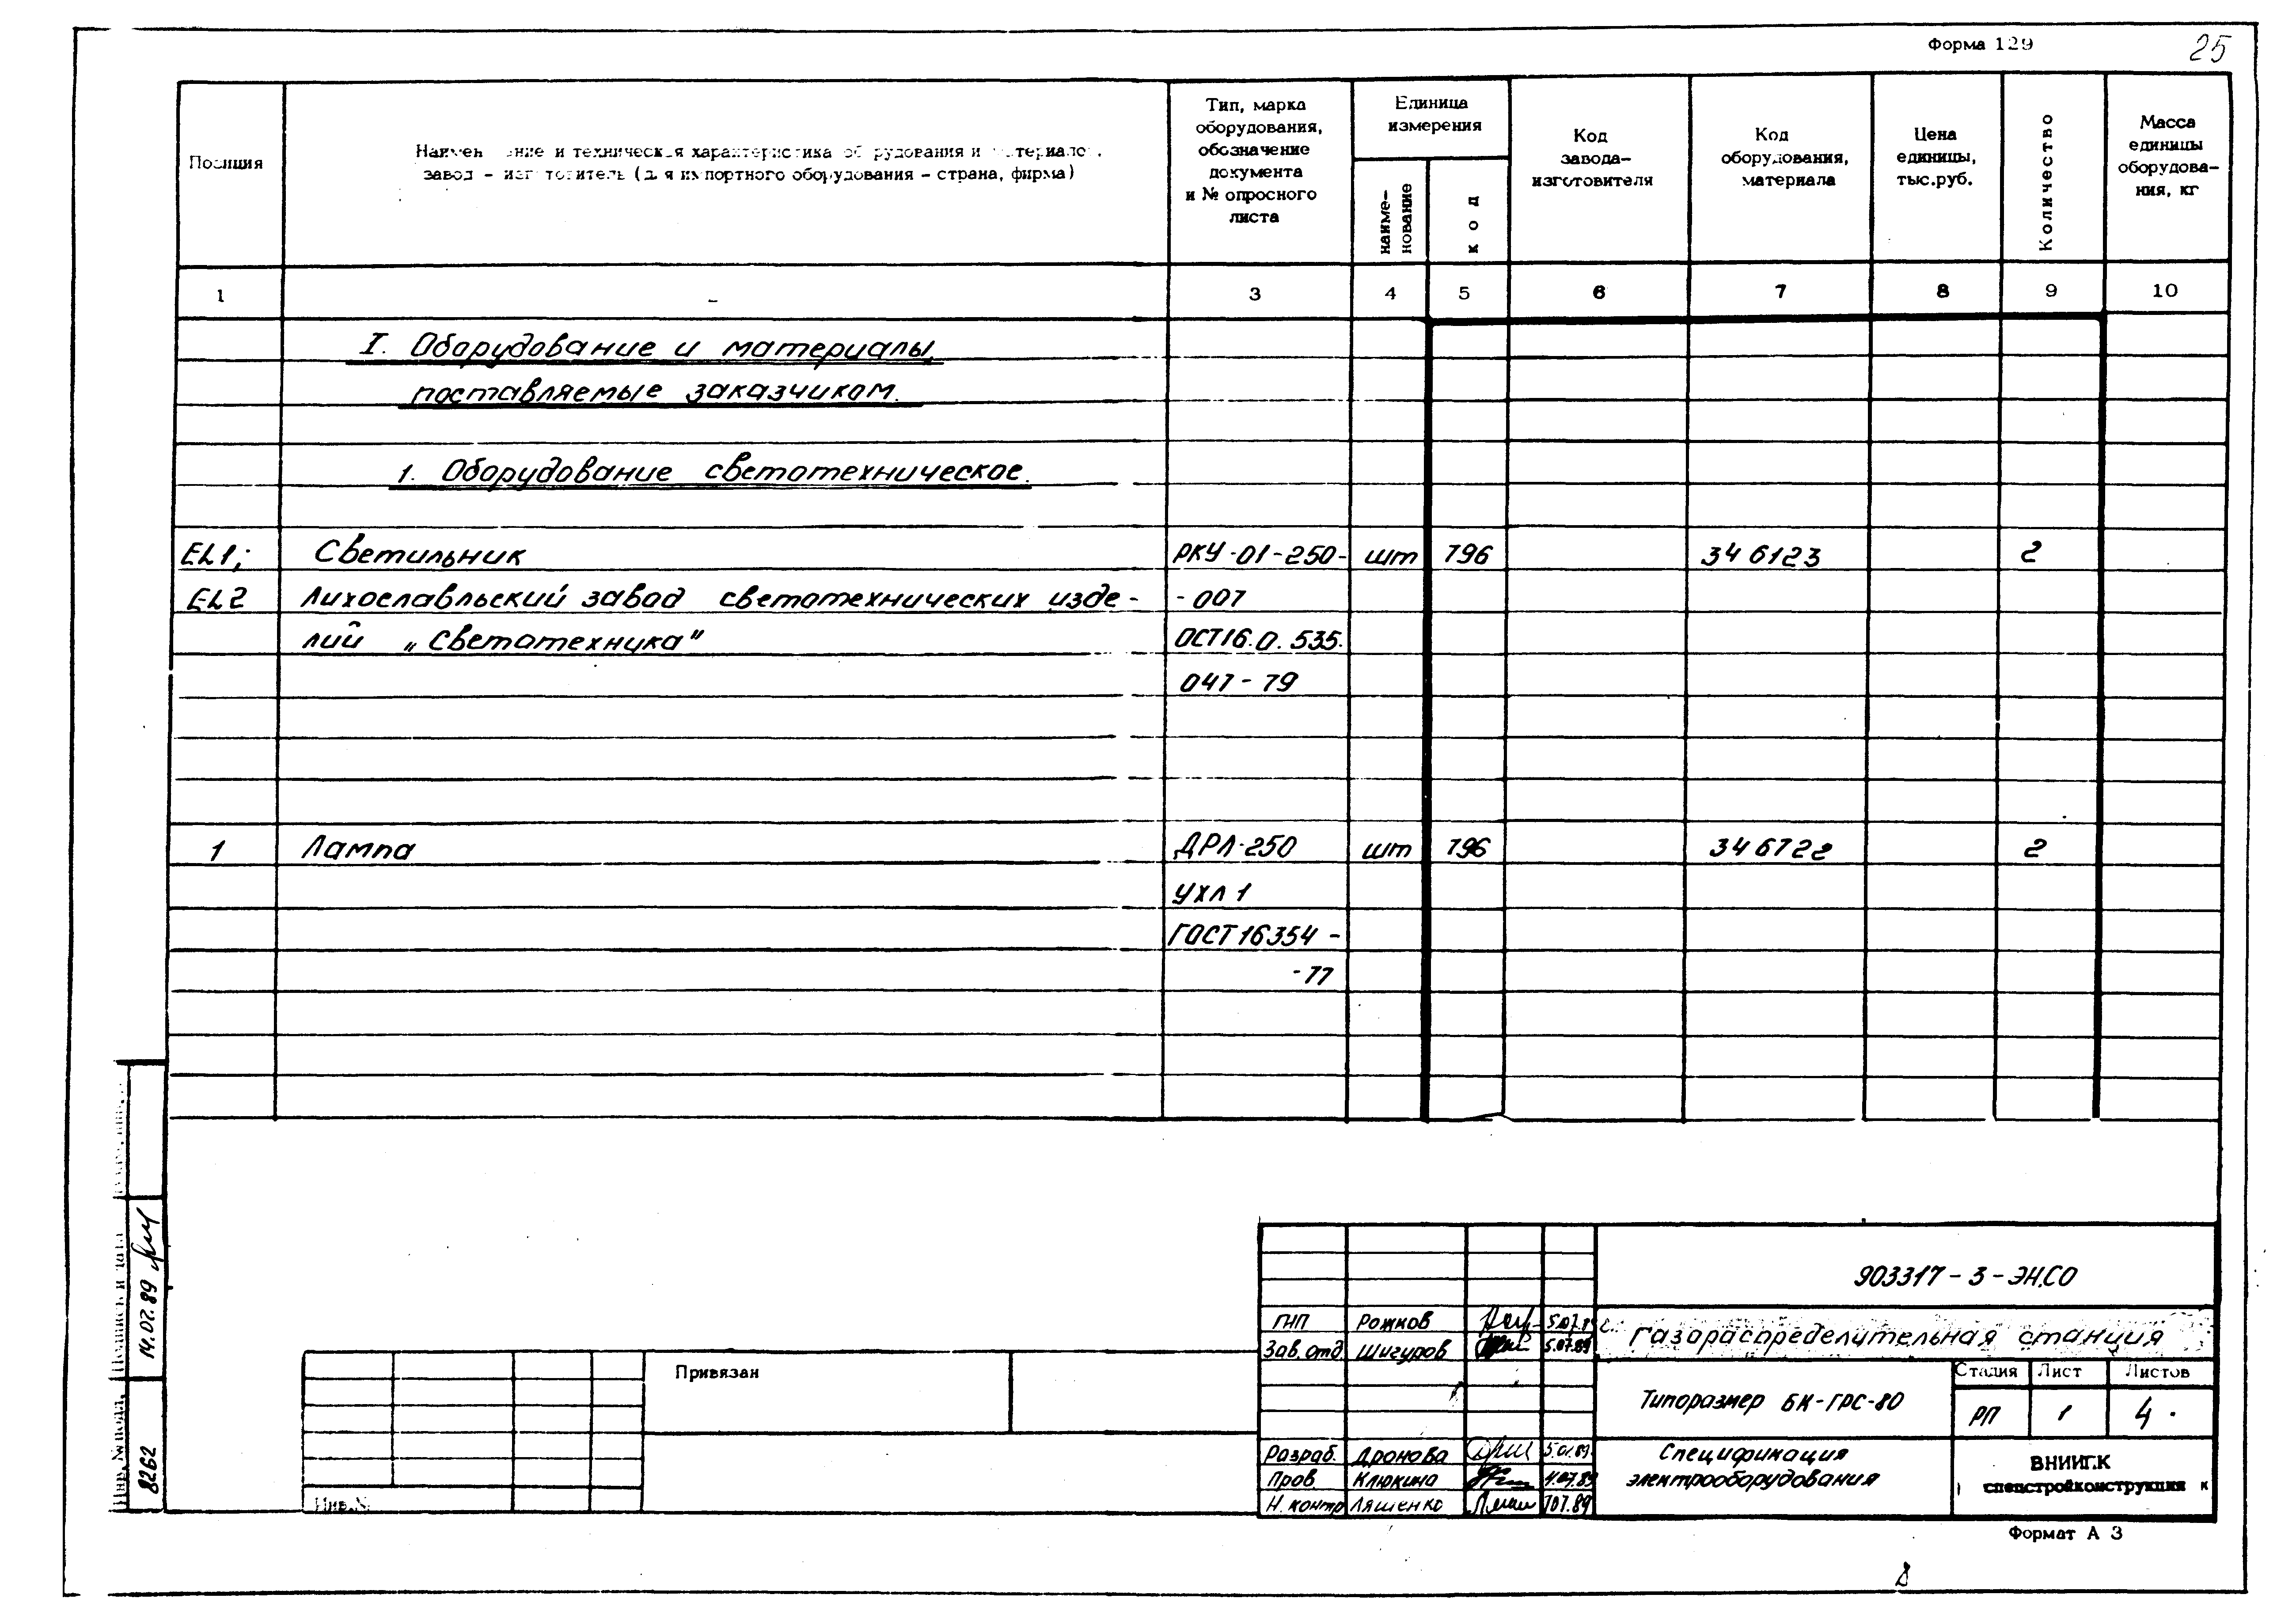 Форма 129
25
Позиция
Наименование и техническая характеристика оборудования и материалов,
завод - изготовитель (для импортного оборудования - страна, фирма)
Тип, марка
оборудования,
обозначение
документа
и № опросного
листа
Единица
измерения
наиме-
нование
код
Код
завода-
изготовителя
Код
оборудования,
материала
Цена
единицы,
тыс.руб.
Количество
Масса
единицы
оборудова-
ния, кг
1 - 3 4 5 6 7 8 9 10
I. Оборудование и материалы,
поставляемые заказчиком.
1. Оборудование светотехническое.
EL1; Светильник РКУ-01-250- шт 796 346123 2
EL2 Лихославльский завод светотехнических изде- -007
лий „Светотехника" ОСТ16.0.535.
047-79
1 Лампа ДРЛ-250 шт 796 346722 2
УХЛ 1
ГОСТ16354-
-77
Подпись и дата 14.07.89
Инв.№подл. 8262
Привязан
Инв.№
903317-3-ЭН.СО
ГИП Рожков 5.07.89
Зав.отд. Шигуров 5.07.89
Газораспределительная станция
Типоразмер БК-ГРС-80
Стадия Лист Листов
РП 1 4
Разраб. Дронова
Пров Клюкина 4.07.89
Н.контр Ляшенко
Спецификация
электрооборудования
спецстройконструкция
Формат А 3
8